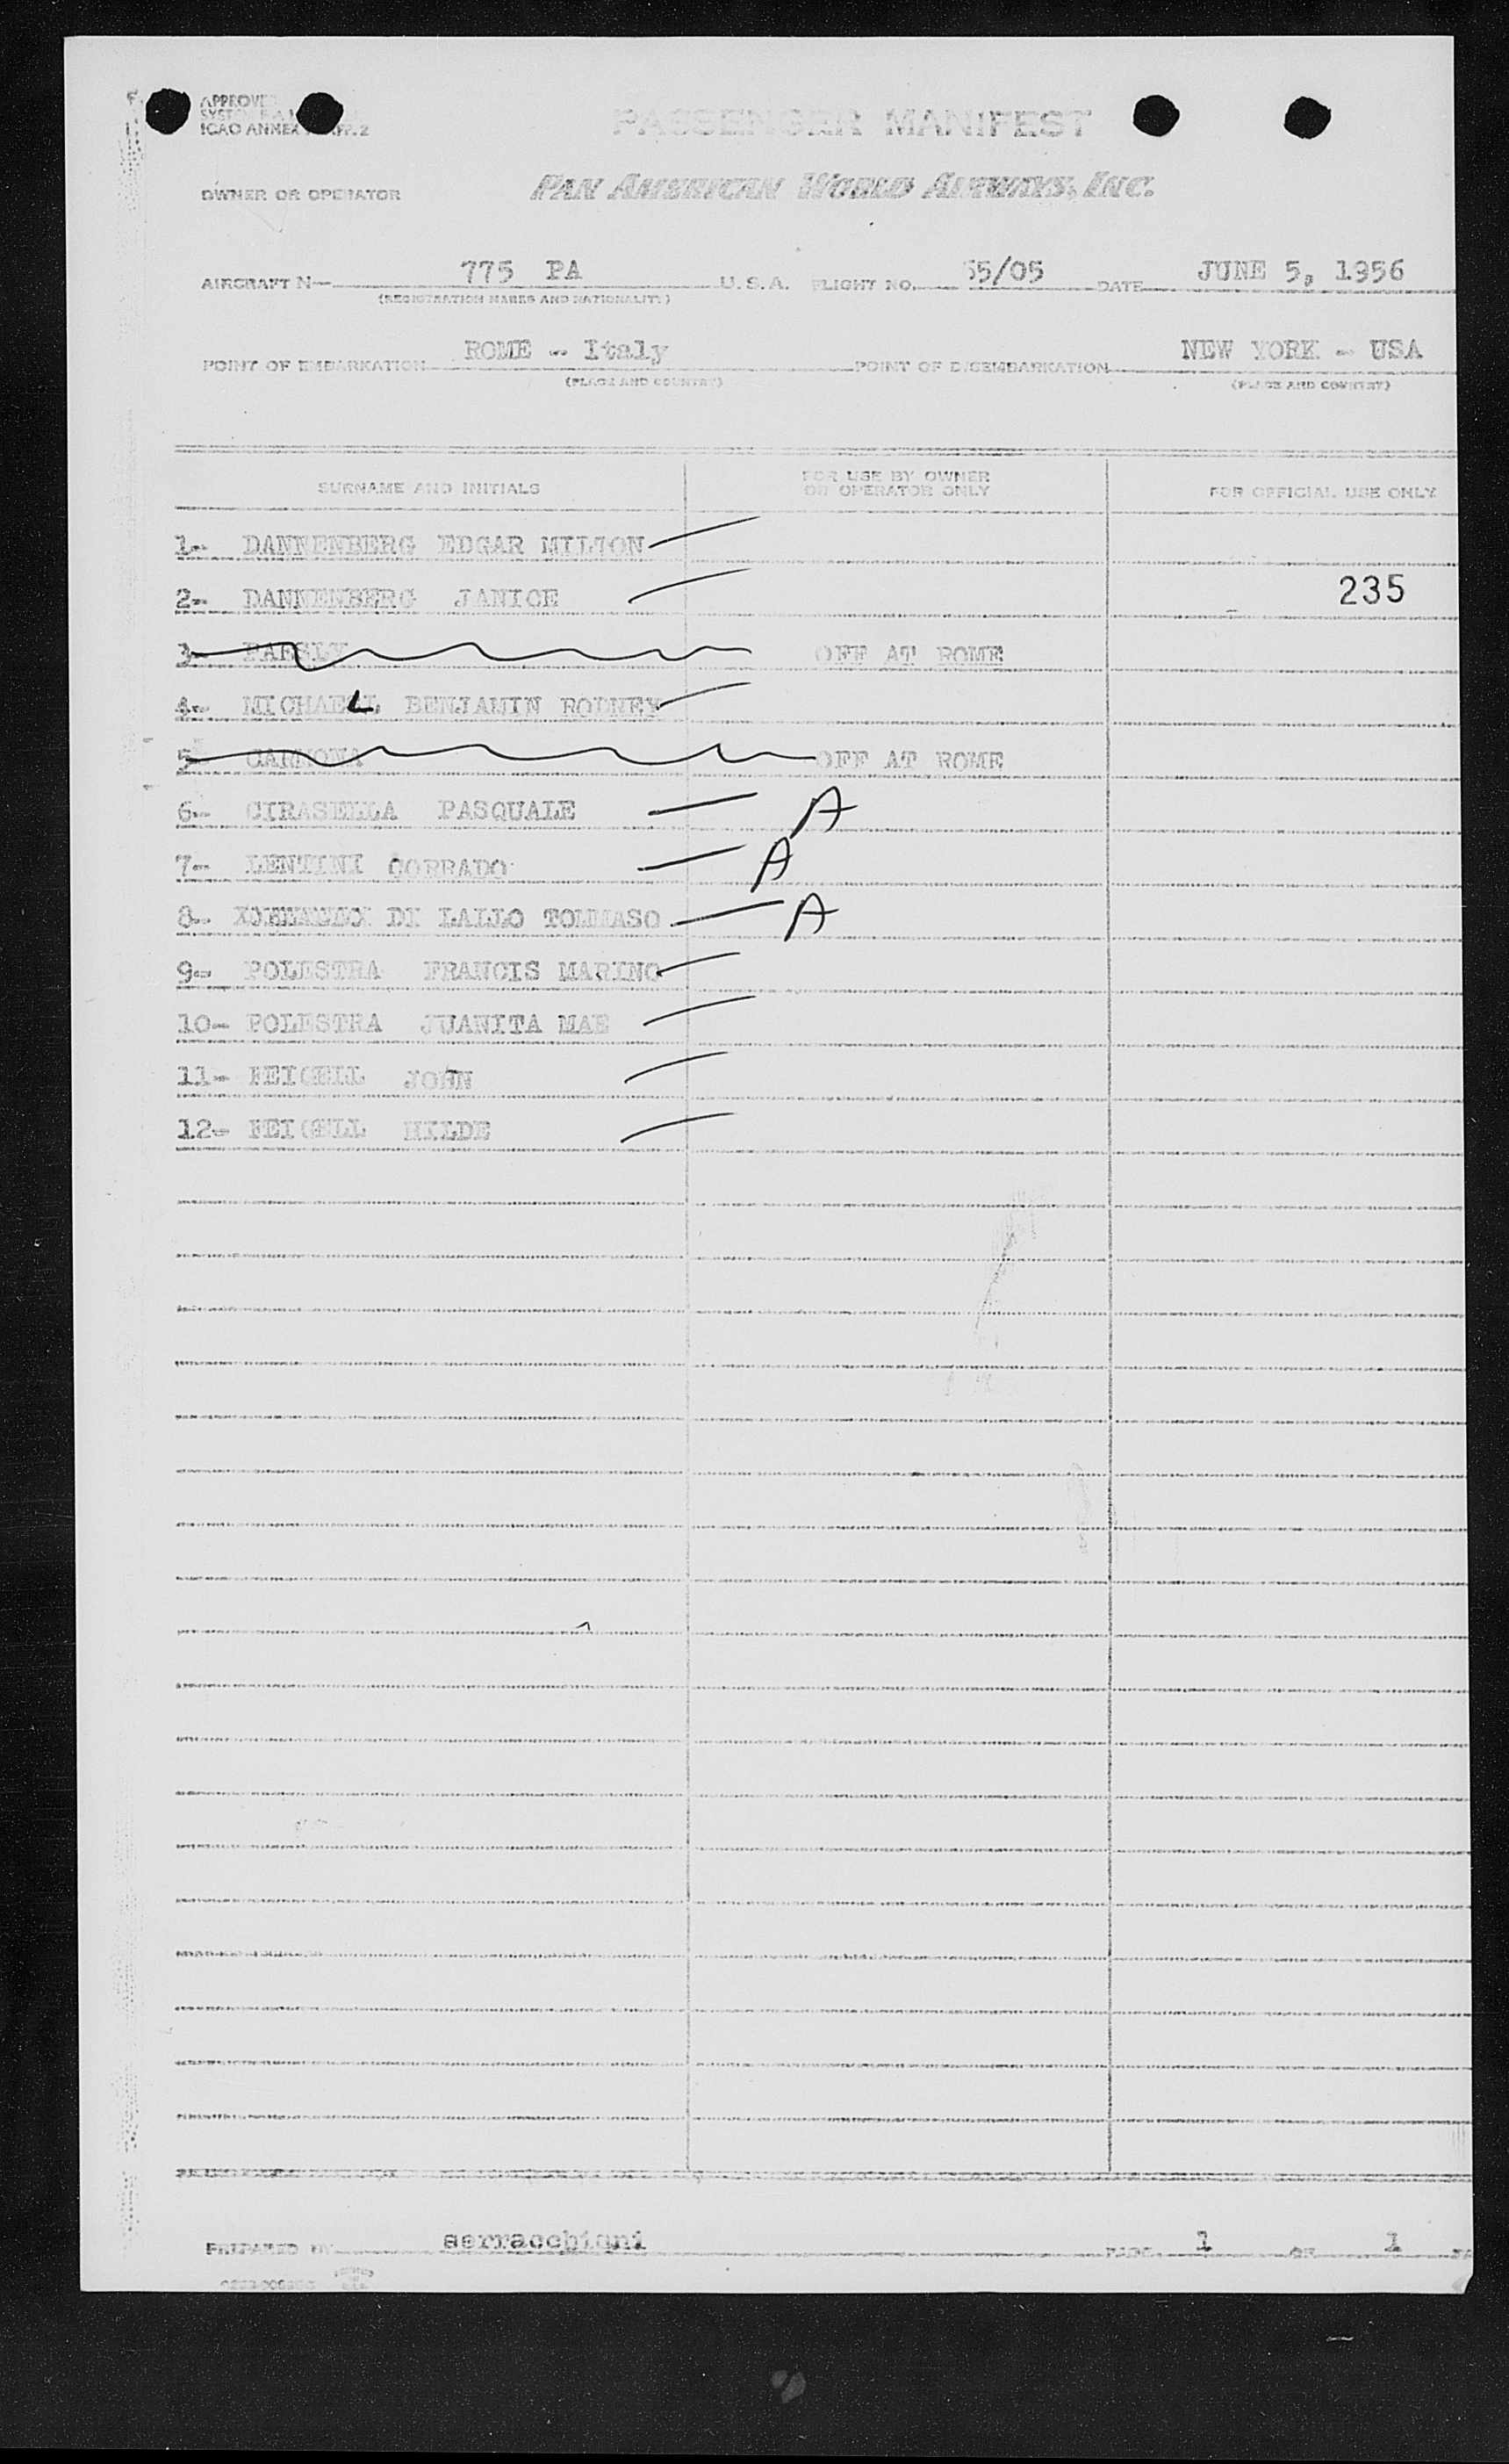 APPROVE
ICAO ANNEX
PASSENGER MANIFEST
OWNER OR OPERATOR PAN AMERICAN WORLD AIRWAYS, INC.
AIRCRAFT N— 775 PA U.S.A. FLIGHT NO. 55/05 DATE JUNE 5, 1956
(REGISTRATION MARKS AND NATIONALITY)
POINT OF EMBARKATION ROME - Italy POINT OF DISEMBARKATION NEW YORK - USA
(PLACE AND COUNTRY) (PLACE AND COUNTRY)
SURNAME AND INITIALS FOR USE BY OWNER OR OPERATOR ONLY FOR OFFICIAL USE ONLY
1- DANNENBERG EDGAR MILTON
2- DANNENBERG JANICE 235
3- OFF AT ROME
4- MICHAEL BENJAMIN RODNEY
5- CARMONA OFF AT ROME
6- CIRASELLA PASQUALE A
7- LENTINI CORRADO A
8- DI LALLO TOMMASO A
9- POLESTRA FRANCIS MARINO
10- POLESTRA JUANITA MAE
11- FEIGELL JOHN
12- FEIGELL HILDE
PREPARED BY serracchiani PAGE 1 OF 1